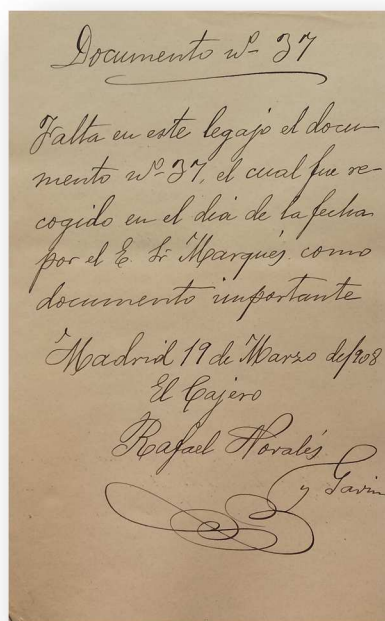 Documento nº 37
Falta en este legajo el docu-
mento nº 37, el cual fue re-
cogido en el dia de la fecha
por el E. Sr Marqués como
documento importante
Madrid 19 de Marzo de 1908
El Cajero
Rafael Morales
y